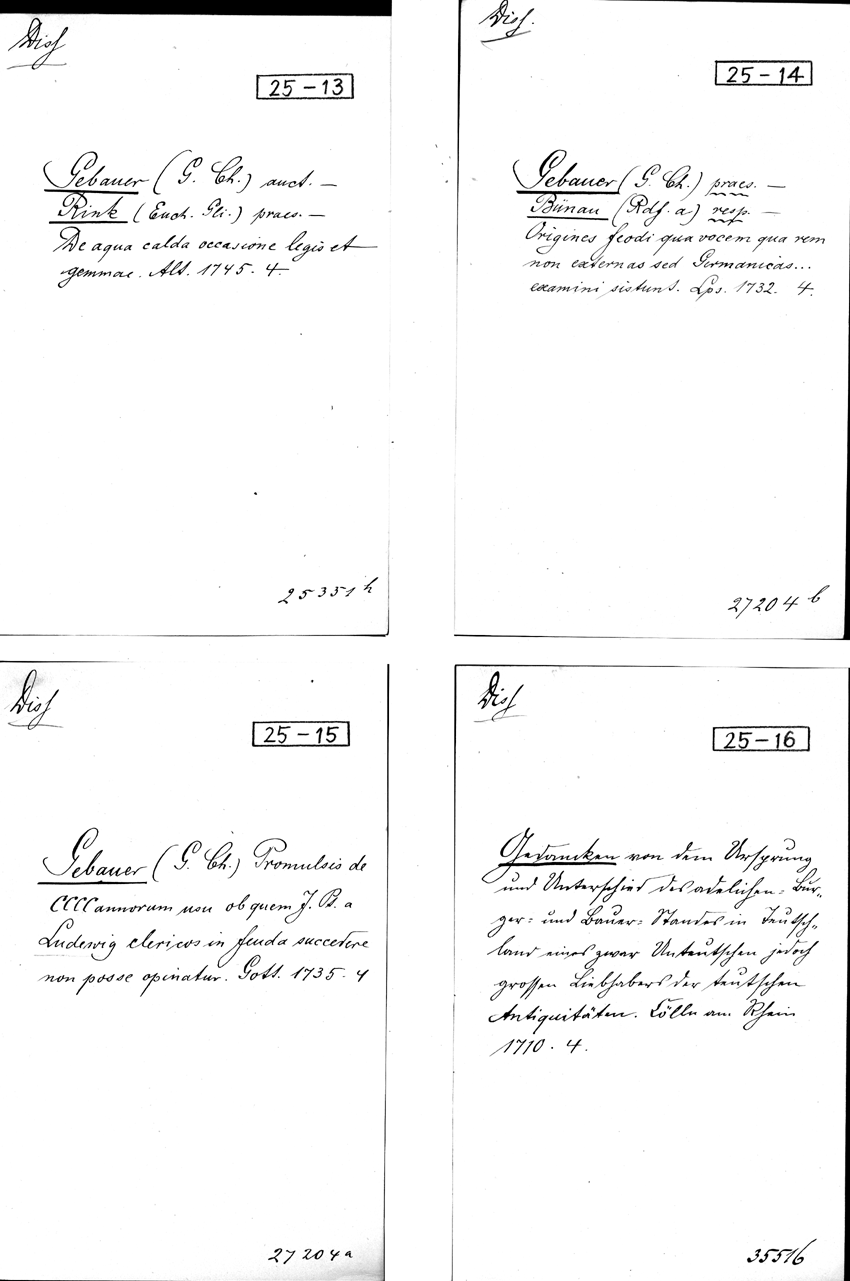 Diss
25-13
Gebauer (G. Ch.) auct. —
Rink (Euch. Gli.) praes. —
De aqua calda occasione legis et
gemmae. Alt. 1745. 4.
25351 h
Diss.
25-14
Gebauer (G. Ch.) praes. —
Bünau (Rdf. a) resp. —
Origines feodi qua vocem qua rem
non externas sed Germanicas...
examini sistunt. Lps. 1732. 4.
27204 b
Diss
25-15
Gebauer (G. Ch.) Promulsis de
CCCC annorum usu ob quem J. P. a
Ludewig clericos in feuda succedere
non posse opinatur. Gott. 1735. 4
27204 a
Diss
25-16
Gedancken von dem Ursprung
und Unterschied des adelichen- Bür-
ger- und Bauer-Standes in Teutsch-
land eines zwar Unteutschen jedoch
grossen Liebhabers der teutschen
Antiquitäten. Cölln am Rhein
1710. 4.
35516